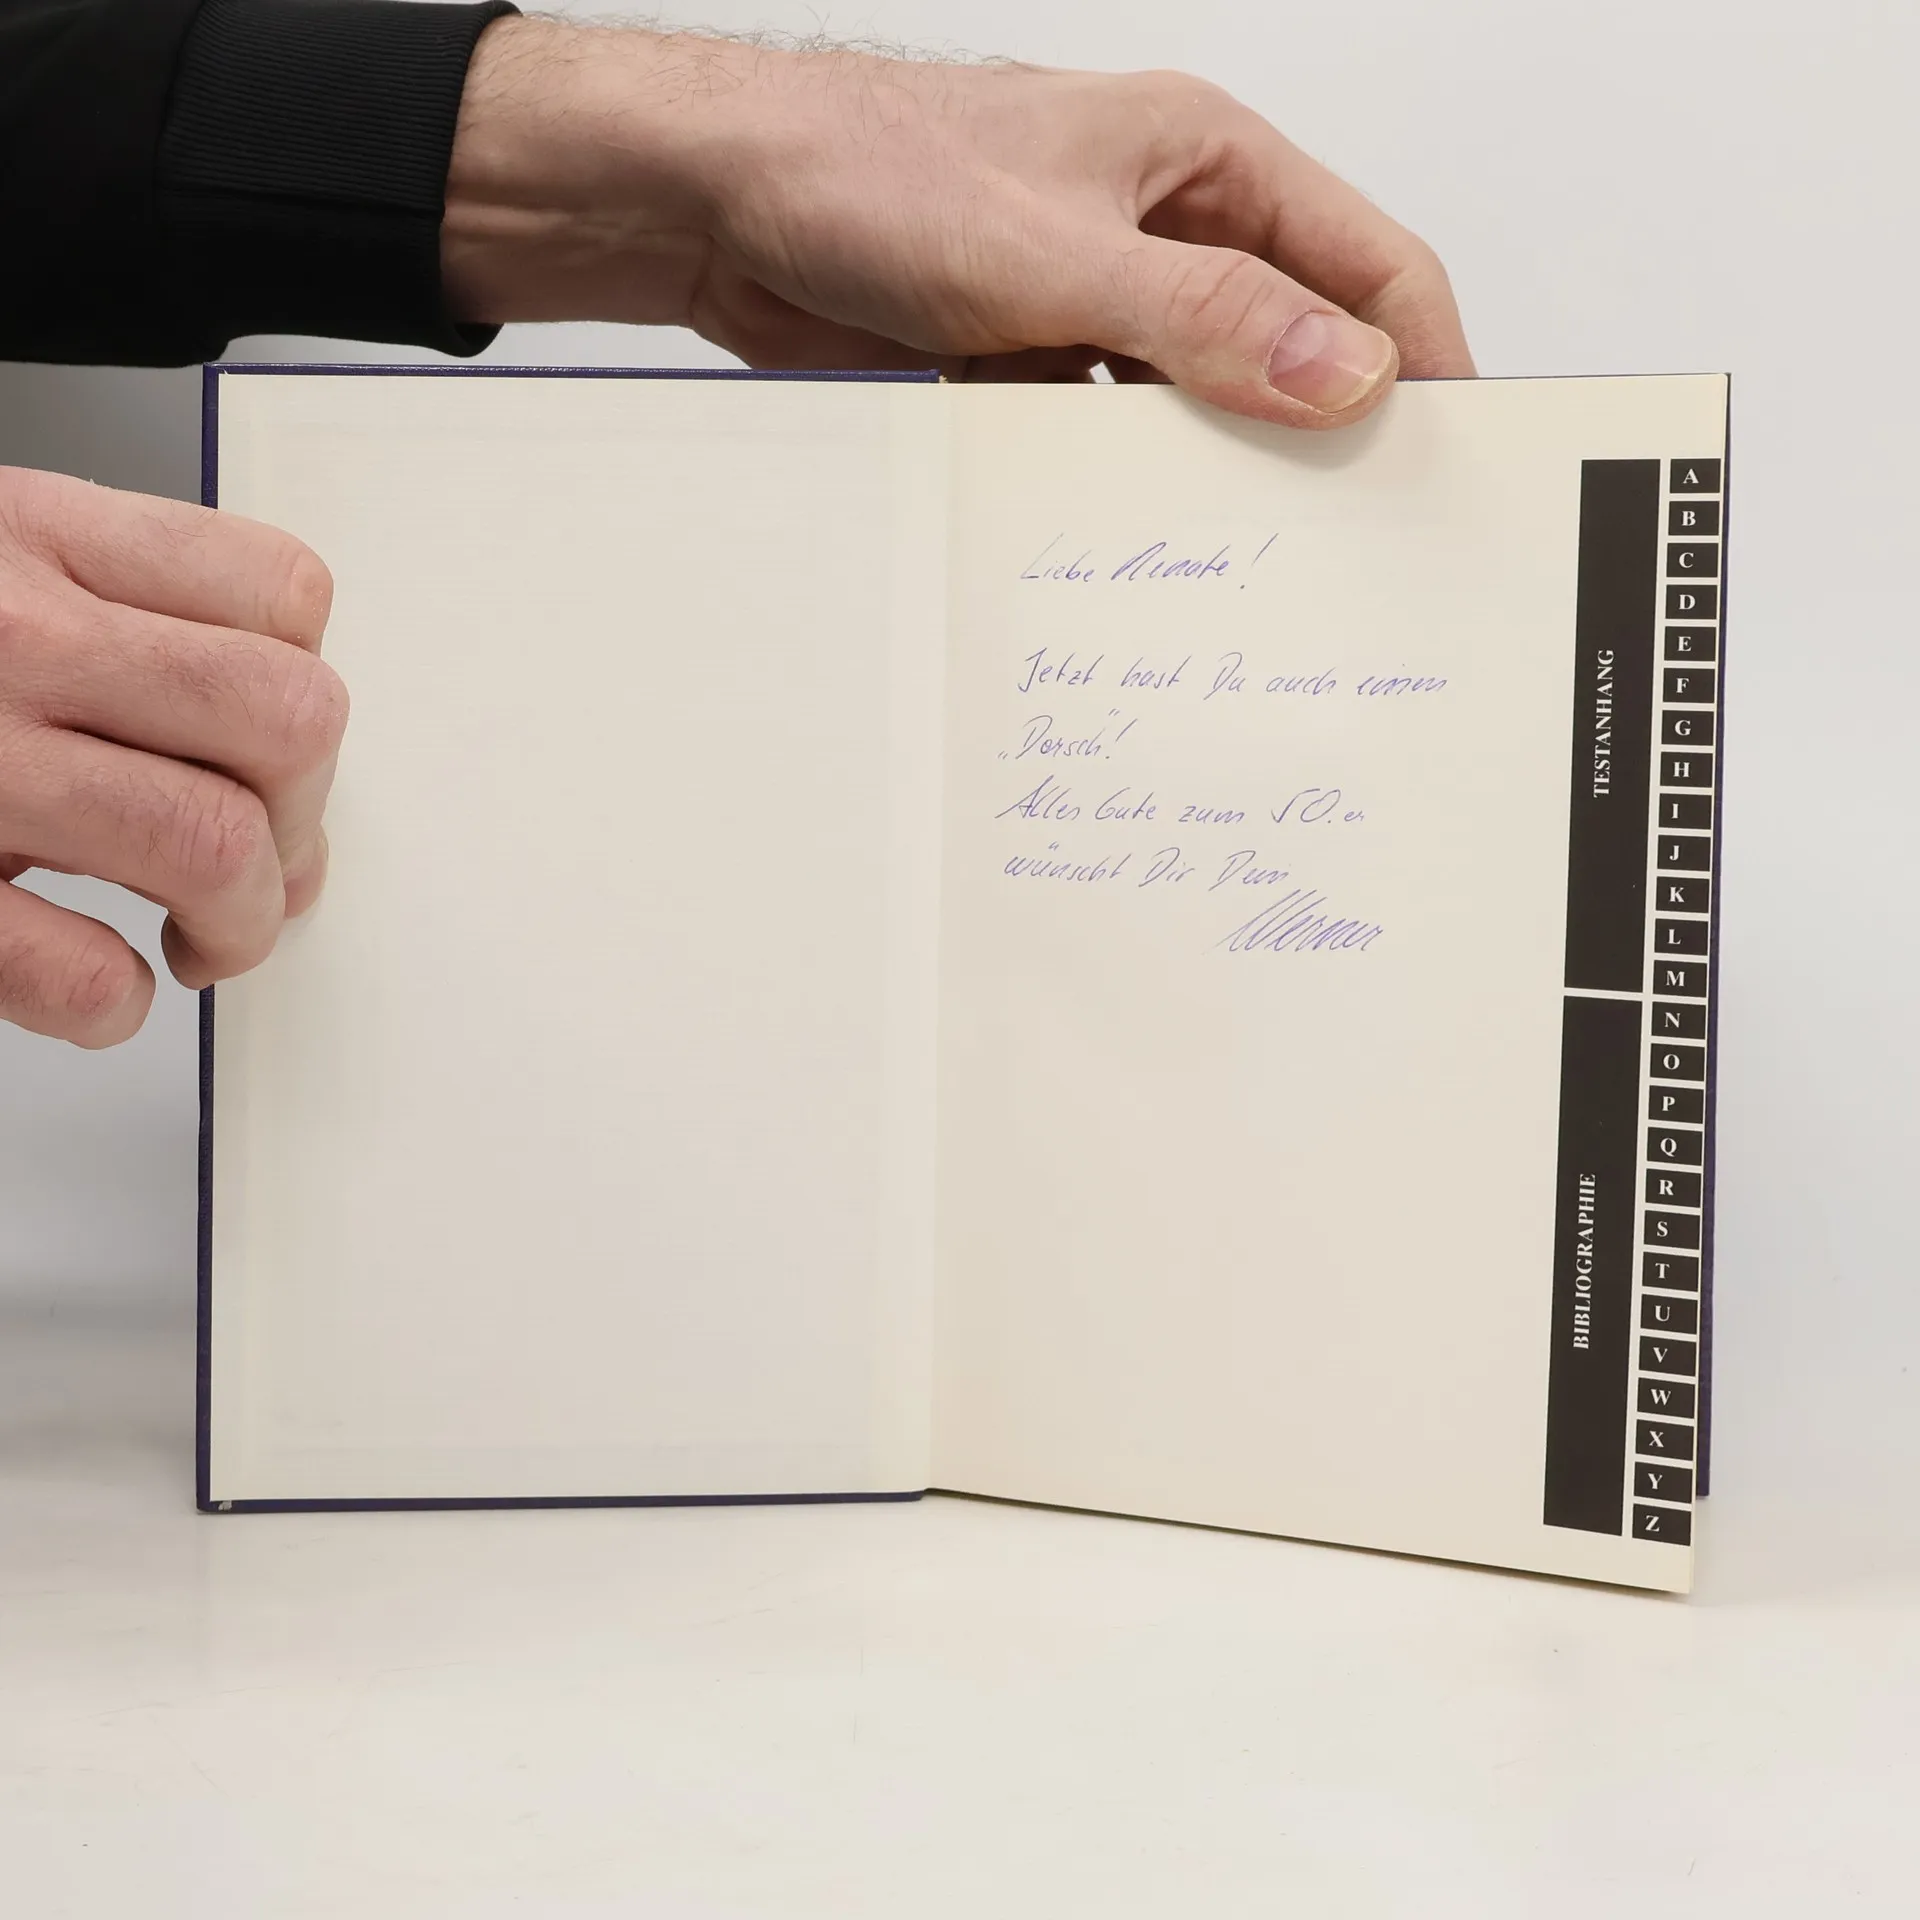 Liebe Renate!
Jetzt hast Du auch einen
„Dorsch“!
Alles Gute zum 50.er
wünscht Dir Dein
Werner
TESTANHANG
BIBLIOGRAPHIE
A
B
C
D
E
F
G
H
I
J
K
L
M
N
O
P
Q
R
S
T
U
V
W
X
Y
Z